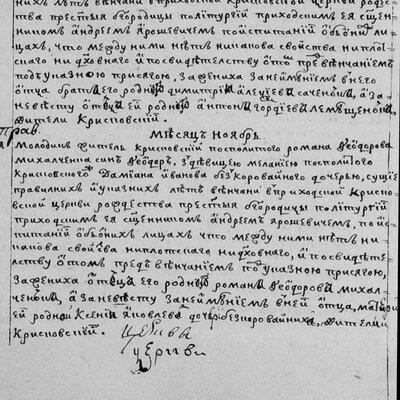 нихъ лѣтъ вѣнчани вприходской крисковской церкви рождес
тва престыѧ бгородицы полѣтургіи приходскимъ еѧ сщен
никомъ андреемъ Ярошевичемъ поиспитаніи обоѣхъ ли
цахъ, что между ними нѣтъ никакова свойства ни плоц
кого ни духовнаго и посвидѣтелству отомъ предвѣнчаніемъ
подъуказною присягою, заженика занеимѣніемъ внего
отца братъ его родный димитрій алеѯіевъ саченовъ, а за
невѣсту отецъ ей родный антонъ гордіевъ лемѣщеновъ,
жители Крисковскій
прав.
Мѣсяцъ ноябрь
Молодикъ житель крисковскій посполитого романа Ѳеодорова
михалченка синъ Ѳеодоръ, здѣвицею меланіею посполитого
крисковского Даміана иванова безкоровайного дочерью, сущіе
правилнихъ иуказнихъ лѣтъ вѣнчани вприходской криско
вской церкви рождества престыѧ бгородицы полѣтургіи
приходскимъ еѧ сщенникомъ андреемъ Ярошевичемъ, поис
питаніи обоѣхъ лицахъ что между ними нѣтъ ни
какова свойства ниплотского нидховнаго, и посвидѣте
лству отомъ предъ вѣнчаніемъ подъуказною присягою,
Заженика отецъ его родный романъ Ѳеодоровъ михал
ченокъ, а заневѣсту занеимѣніемъ внеѣ отца, матери
ей родная Ксенія яковлева дочь безкоровайникова, жители
Крисковскій
церкви